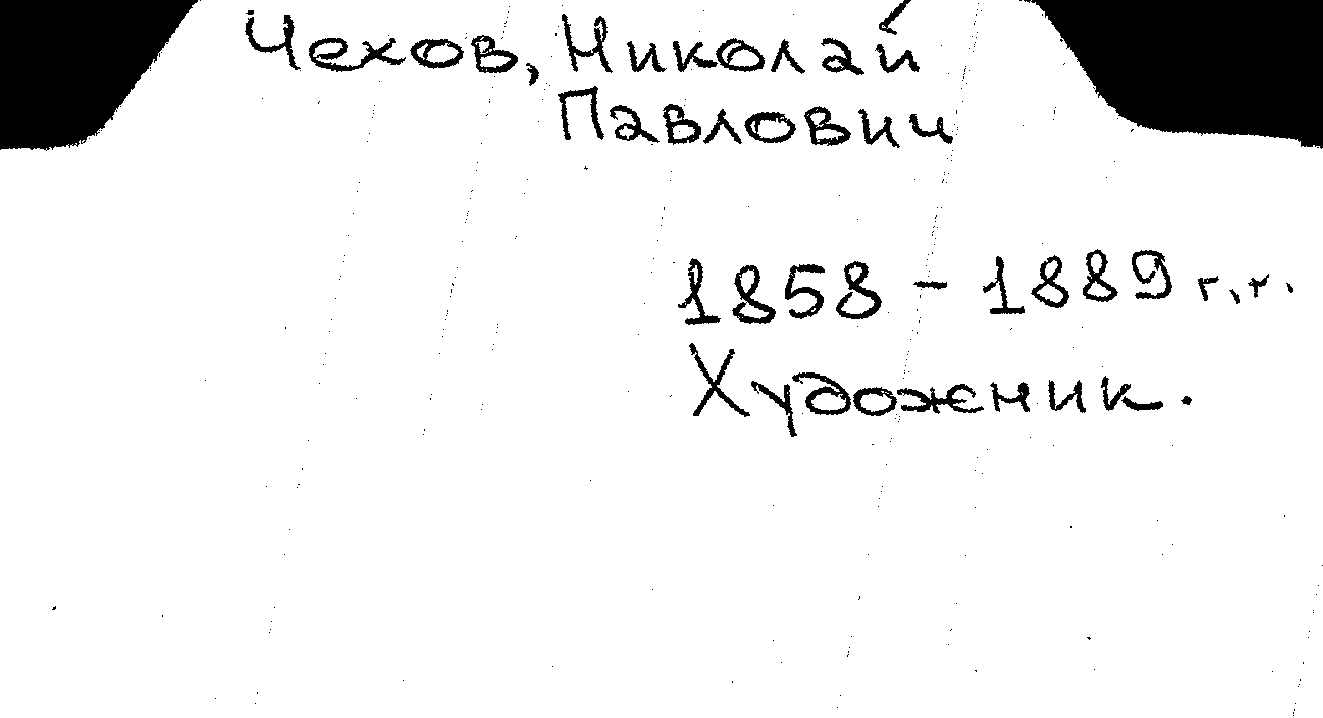 Чехов, Николай
Павлович
1858 - 1889 г.г.
Художник.